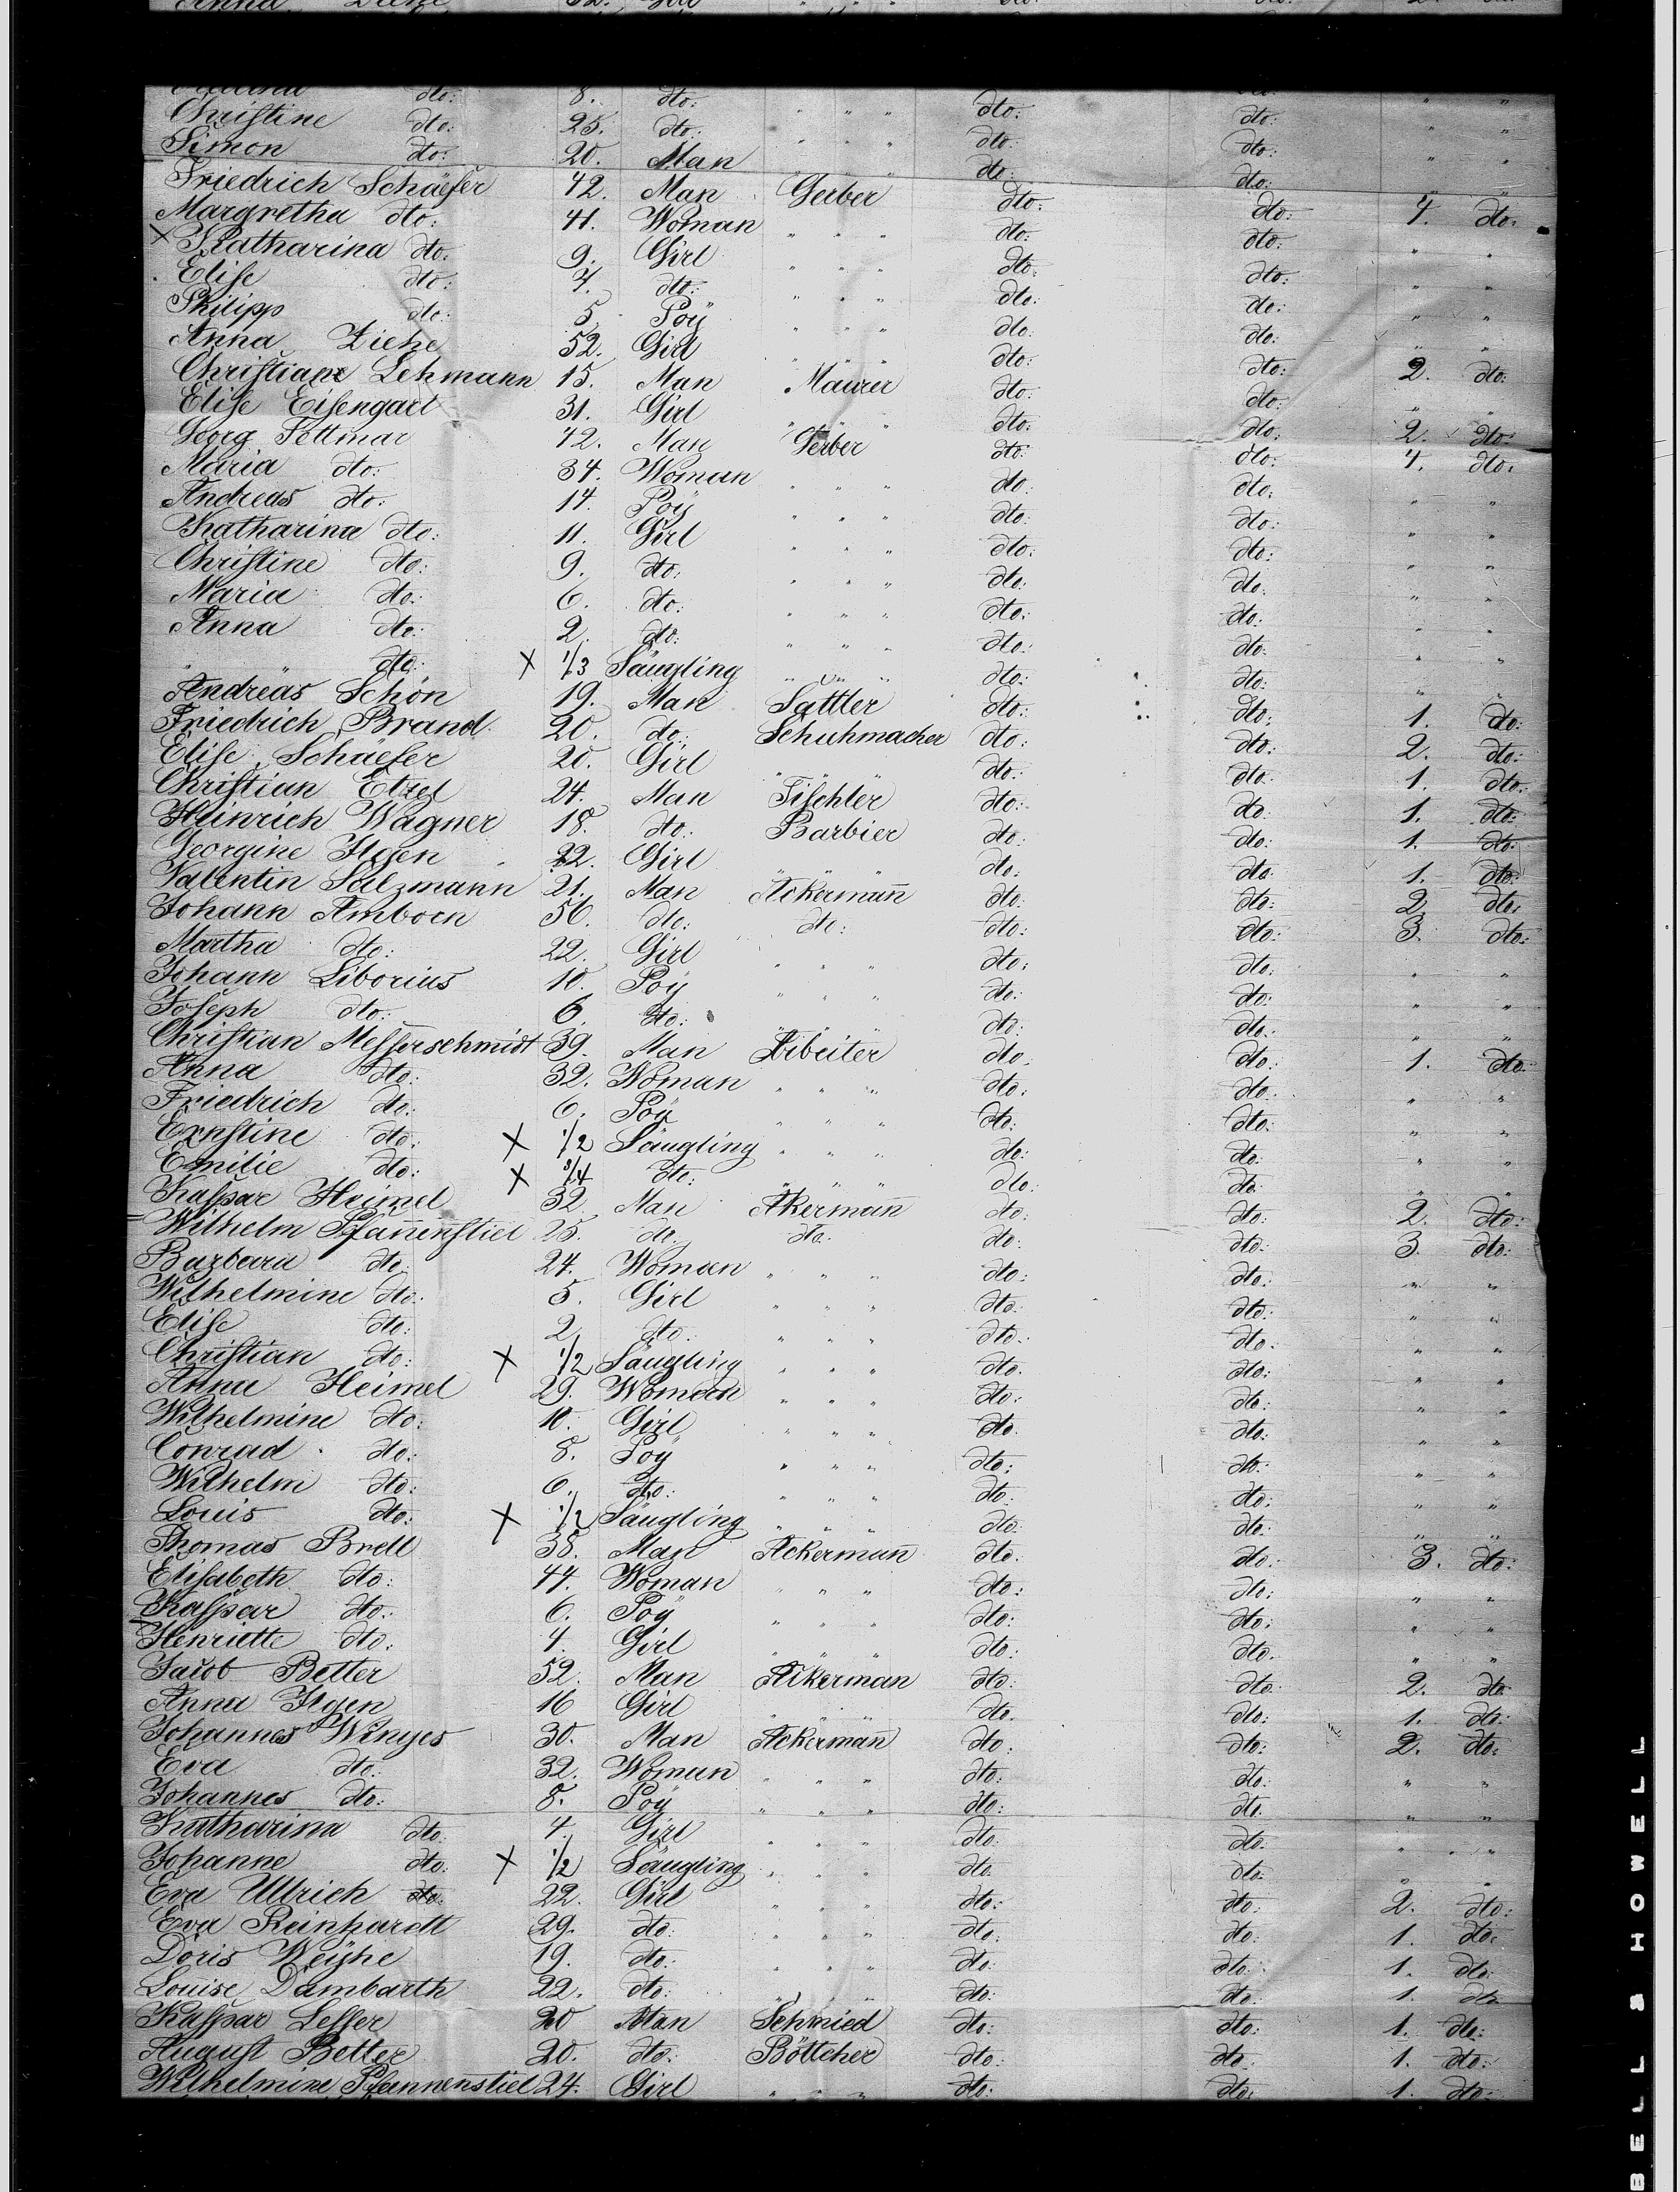 Anna Ziehe 52. Girl " " " dto: dto: 2. dto:
dto: 8. dto: " " " dto: dto: " "
Christine dto: 25. dto: " " " dto: dto: " "
Simon dto: 20. Man dto: dto: " "
Friedrich Schäefer 42. Man Gerber dto: dto: 4. dto:
Margretha dto: 41. Woman " " " dto: dto: " "
X Katharina dto: 9. Girl " " " dto: dto: " "
Elise dto: 7. dto: " " " dto: dto: " "
Philipp dto: 5 Poÿ " " " dto: dto: " "
Anna Ziehe 52. Girl " " " dto: dto: 2. dto:
Christian Lehmann 15. Man Maurer dto: dto: " "
Elise Eisengart 31. Girl " " " dto: dto: 2. dto:
Georg Fettmar 42. Man Gerber dto: dto: 4. dto:
Maria dto: 34. Woman " " " dto: dto: " "
Andreas dto: 14. Poÿ " " " dto: dto: " "
Katharina dto: 11. Girl " " " dto: dto: " "
Christine dto: 9. dto: " " " dto: dto: " "
Maria dto: 6. dto: " " " dto: dto: " "
Anna dto: 2. dto: " " " dto: dto: " "
" " dto: X 1/3 Säugling " " " dto: dto: " "
Andreas Schön 19. Man Sattler dto: dto: 1. dto:
Friedrich Brand 20. dto: Schuhmacher dto: dto: 2. dto:
Elise Schäefer 20. Girl " " " dto: dto: 1. dto:
Christian Etzel 24. Man Tischler dto: dto: 1. dto:
Heinrich Wagner 18. dto: Barbier dto: dto: 1. dto:
Georgine Ilgen 22. Girl " " " dto: dto: 1. dto:
Valentin Salzmann 21. Man Ackermañ dto: dto: 2. dto:
Johann Amborn 56. dto: dto: dto: dto: 3. dto:
Martha dto: 22. Girl " " " dto: dto: " "
Johann Liborius 10. Poÿ " " " dto: dto: " "
Joseph dto: 6 dto: " " " dto: dto: " "
Christian Messerschmidt 39. Man Arbeiter dto: dto: 1. dto:
Anna dto: 32. Woman " " " dto: dto: " "
Friedrich dto: 6. Poÿ " " " dto: dto: " "
Ernstine dto: X 1/2 Säugling " " " dto: dto: " "
Emilie dto: X 3/4 dto: " " " dto: dto: " "
Kaspar Heimel 32 Man Akermañ dto: dto: 2. dto:
Wilhelm Pfañenstiel 25. dto: dto: dto: dto: 3. dto:
Barbara dto: 24. Woman " " " dto: dto: " "
Wilhelmine dto: 5. Girl " " " dto: dto: " "
Elise dto: 2 dto: " " " dto: dto: " "
Christian dto: X 1/2 Säugling " " " dto: dto: " "
Anna Heimel 29. Woman " " " dto: dto: " "
Wilhelmine dto: 10. Girl " " " dto: dto: " "
Conrad dto: 8. Poÿ " " " dto: dto: " "
Wilhelm dto: 6. dto: " " " dto: dto: " "
Louis dto: X 1/2 Säugling " " " dto: dto: " "
Thomas Brell 38. Man Ackermañ dto: dto: 3. dto:
Elisabeth dto: 44. Woman " " " dto: dto: " "
Kaspar dto: 6. Poÿ " " " dto: dto: " "
Henriette dto: 4. Girl " " " dto: dto: " "
Jacob Better 52. Man Akerman dto: dto: 2. dto
Anna Ilgen 16 Girl " " " dto: dto: 1. dto:
Johannes 30. Man Ackermañ dto: dto: 2. dto:
Eva dto: 32. Woman " " " dto: dto: " "
Johannes dto: 8. Poÿ " " " dto: dto: " "
Katharina dto: 4. Girl " " " dto: dto: " "
Johanne dto: X 1/2 Säugling " " " dto: dto: " "
Eva Ullrich dto: 22. Girl " " " dto: dto: 2. dto:
Eva Reinhardt 29. dto: " " " dto: dto: 1. dto:
Doris Weÿhe 19. dto: " " " dto: dto: 1. dto:
Louise Dambarth 22. dto: " " " dto: dto: 1. dto
Kaspar Lesser 20 Man Schmied dto: dto: 1. dto:
August Better 20. dto: Böttcher dto: dto: 1. dto:
Wilhelmine Pfannenstiel 24. Girl " " " dto: dto: 1. dto:
BELL & HOWELL